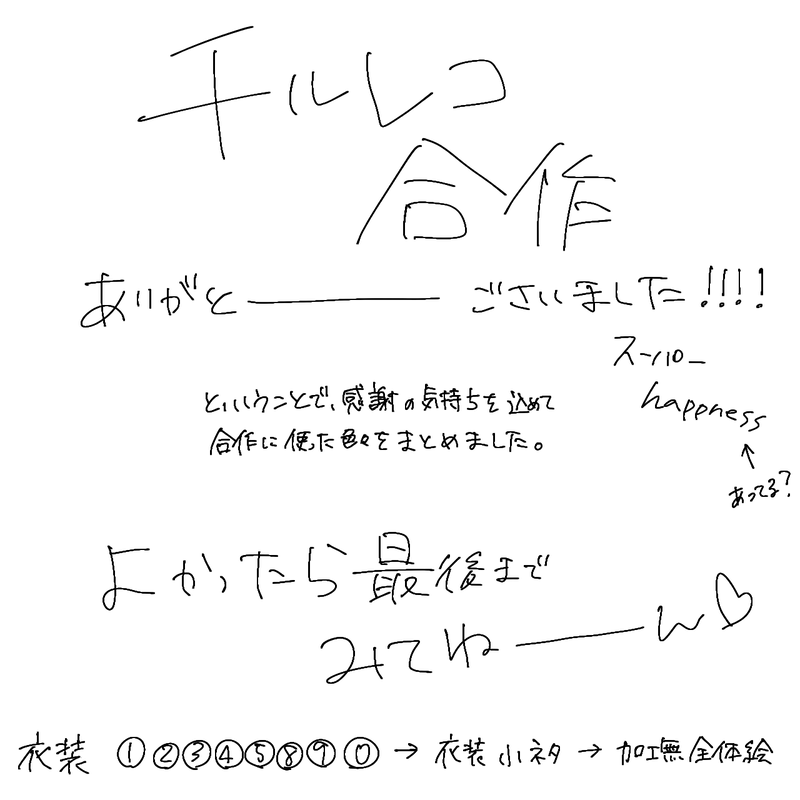 チルレコ
合作
ありがとーございました!!!!
スーパー
happness
↑
あってる?
ということで、感謝の気持ちを込めて
合作に使った色々をまとめました。
よかったら最後まで
みてねーん♡
衣装 ①②③④⑤⑧⑨⓪→衣装小ネタ→加工無全体絵